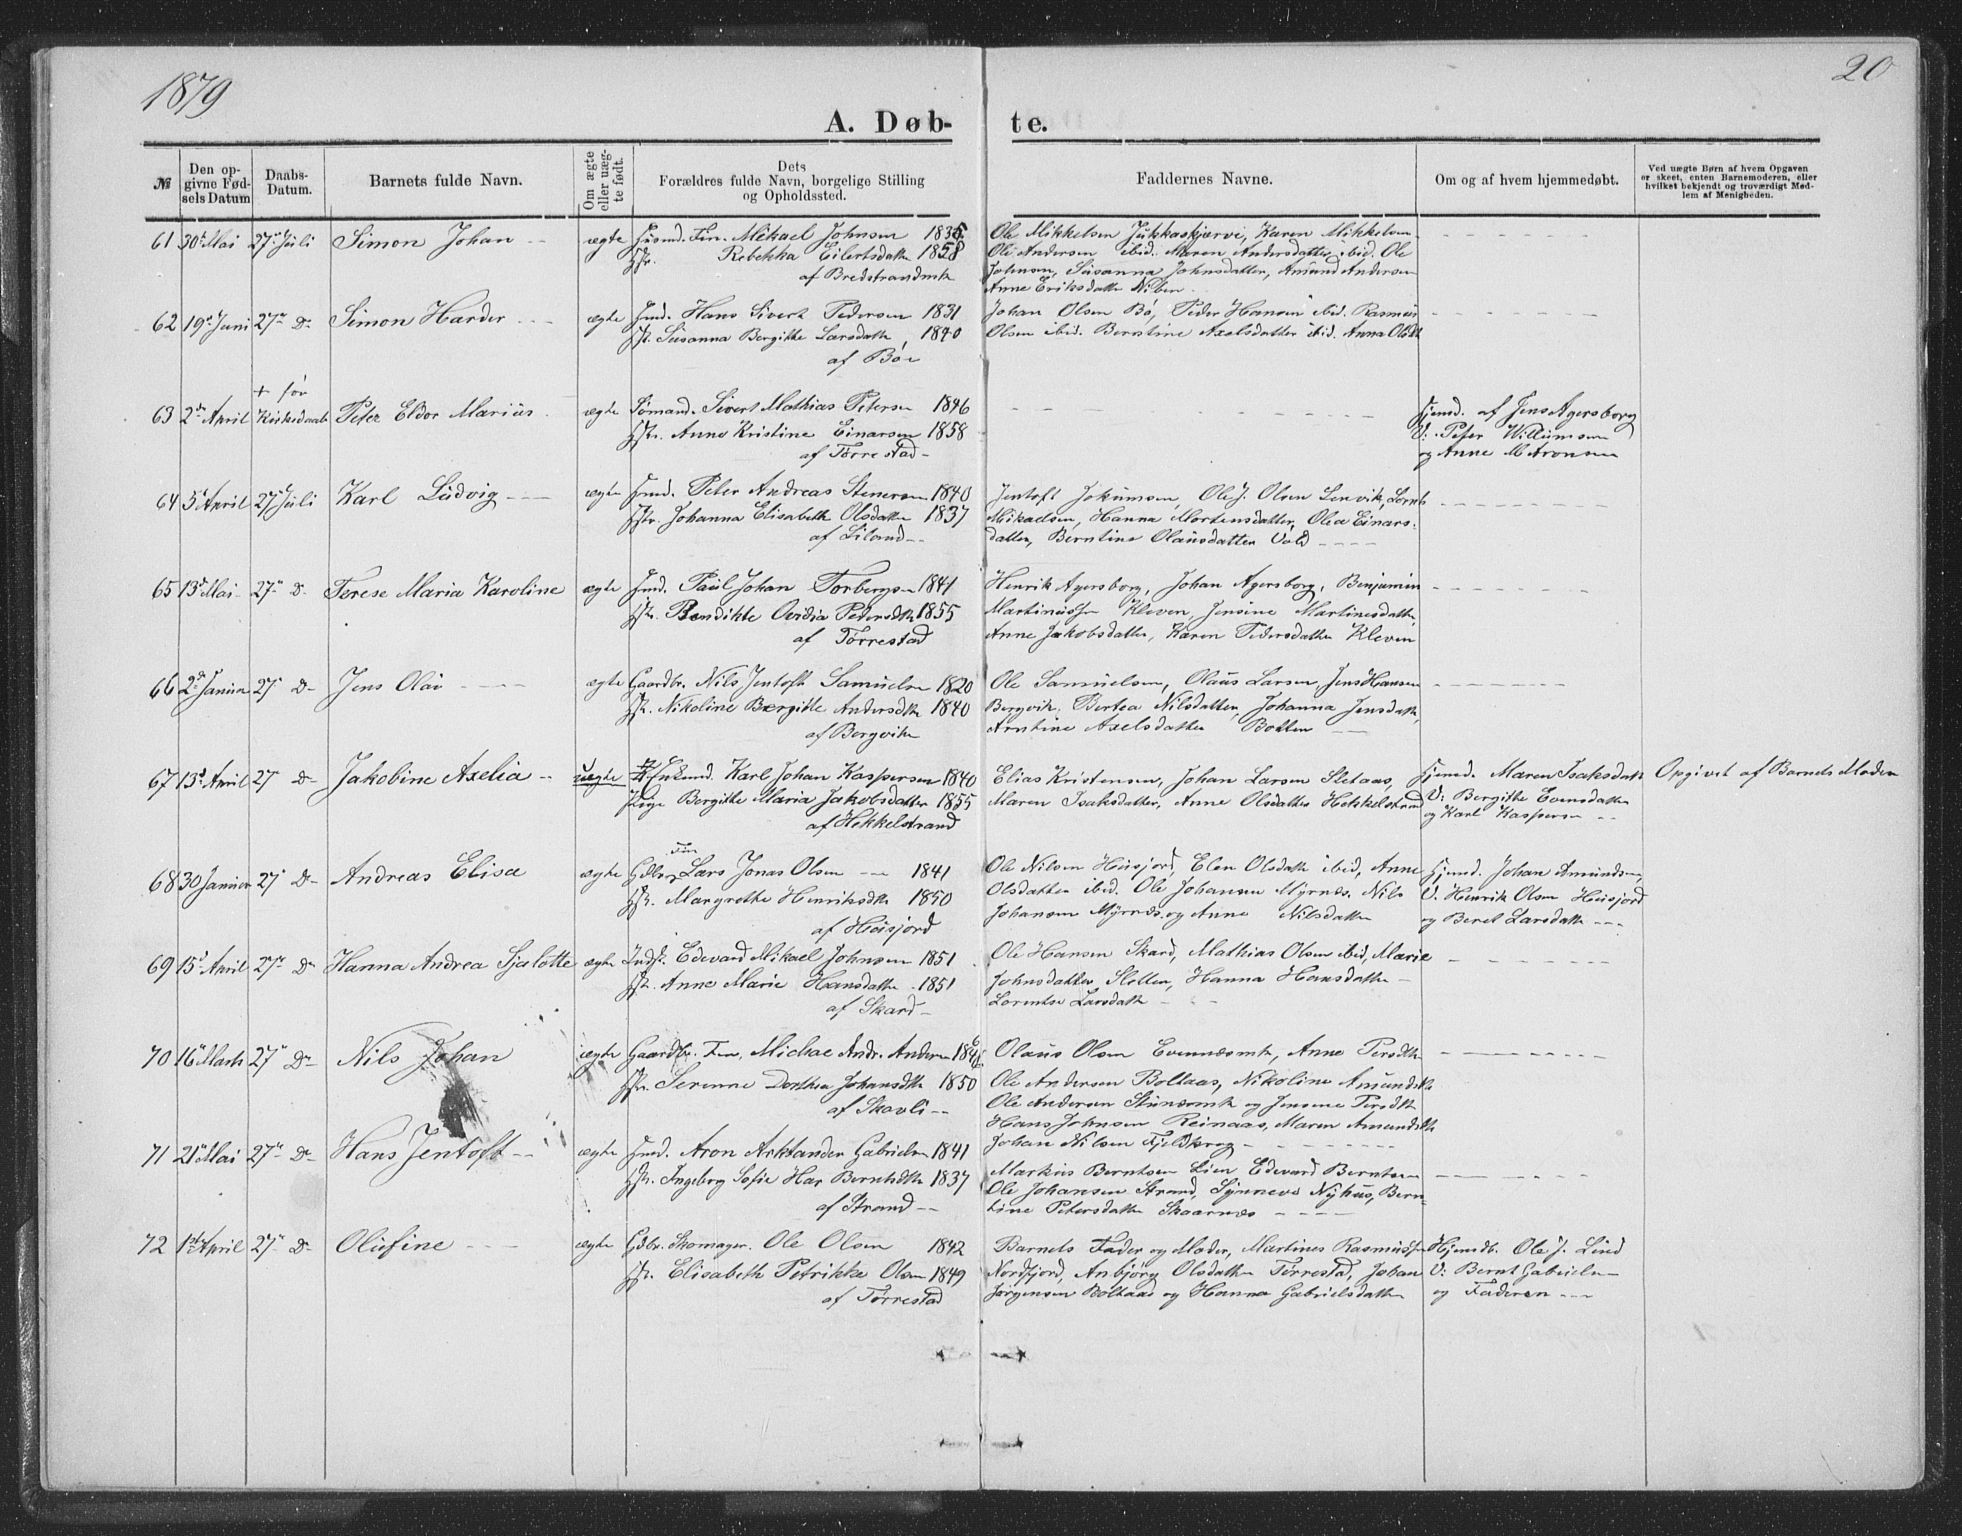 1879
20
A. Døb-
te.
№
Den op-
givne Fød-
sels Datum
Daabs-
Datum.
Barnets fulde Navn.
Om ægte
eller uæg-
te født.
Dets
Forældres fulde Navn, borgelige Stilling
og Opholdssted.
Faddernes Navne.
Om og af hvem hjemmedøbt.
Ved uægte Børn af hvem Opgaven
er skeet, enten Barnemoderen, eller
hvilket bekjendt og troværdigt Med-
lem af Menigheden.
61 30te Mai 27de Juli Simon Johan ægte Husmd. Fin. Mikael Johnsen 1835
Hstr. Rebekka Eilertsdatt 1858
af Bredstrandmk
Ole Mikkelsen Jukkaskjærvi, Karen Mikkelsen
Ole Andersen ibid. Maren Andersdatter ibid. Ole
Johnsen, Susanna Johnsdatter, Amund Andersen
Anne Eriksdatter
62 19de Juni 27de D- Simon Harder ægte Jmd. Hans Sivert Pedersen 1831
Hstr. Susanna Bergitte Larsdatt 1840
af Bø
Johan Olsen Bø, Peder Hansen ibid. Rasmus
Olsen ibid. Berntine Axelsdatter ibid. Anna Olsdt
63 2den April + før
Kirkedaab Peter Eldor Marius ægte Sømand. Sivert Mathias Petersen 1846
Hstr. Anne Kristine Einarsen 1858
af Tørrestad
Hjemd. af Jens Agersborg
V: Peter Willumsen
og Anne M Aronsen
64 5te April 27de Juli Karl Ludvig ægte Jmd. Peter Andreas Stenersen 1840
Hstr. Johanna Elisabeth Olsdatter 1837
af Liland
Jentoft Jokumsen, Ole J. Olsen Lenvik, Lornts
Mikaelsen, Hanna Mortensdatter, Olea Einars-
datter, Berntine Olausdatter Vold
65 13de Mai 27de D- Terese Maria Karoline ægte Jmd. Paul Johan Torbergsen 1841
Hstr. Bendikte Ovidia Pedersdtr 1855
af Tørrestad
Henrik Agersborg, Johan Agersborg, Benjamin
Martinussen Kleven, Jensine Martinesdatter,
Anne Jakobsdatter, Karen Pedersdatter Kleven
66 2den Januar 27de D- Jens Olai ægte Gaardbr. Nils Jentoft Samuelsen 1820
Hstr. Nikoline Bergitte Andersdtr 1840
af Bergvik
Ole Samuelsen, Olaus Larsen, Jens Hansen
Bergvik. Bertea Nilsdatter, Johanna Jensdatt.
Arntine Axelsdatter Botten
67 13de April 27de D- Jakobine Axelia uægte Enkemd. Karl Johan Kaspersen 1840
Pige Bergitte Maria Jakobsdatter 1855
af Hekkelstrand
Elias Kristensen, Johan Larsen Sletaas,
Maren Isaksdatter, Anne Olsdatter Hekkelstrand
Hjemd. Maren Isaksdatt
V: Bergitte Evensdatter
og Karl Kaspersen
Opgivet af Barnets Moder
68 30 Januar 27de D- Andreas Elisa ægte Gdbr. Fin Lars Jonas Olsen 1841
Hstr. Margrethe Henriksdtr 1850
af Høisjord
Ole Nilsen Høisjord, Elen Olsdatt ibid, Anne
Olsdatter ibid. Ole Johansen Myrnes. Nils
Johansen Myrnes. og Anne Nilsdatter
Hjemd. Johan Amundsen,
V. Henrik Olsen Høisjord
og Beret Larsdatt
69 15de April 27de D- Hanna Andrea Sjalotte ægte Indst. Edevard Mikael Johnsen 1851
Hstr. Anne Marie Hansdatter 1851
af Skard
Ole Hansen Skard, Mathias Olsen ibid, Marie
Johnsdatter Sletten, Hanna Hansdatter
Lorentse Larsdatt
70 16de Marts 27de D- Nils Johan ægte Gaardbr. Fin, Michae Andr. Andersen 1846
Hstr. Serenne Dorthea Johansdtr 1850
af Skavli
Olaus Olsen Evenesmk, Anne Persdtr
Ole Andersen Boltaas, Nikoline Amundsdtr
Ole Andersen og Jensine Persdtr
Hans Johnsen Reinaas, Maren Amundsdtr
Johan Nilsen Fjeldkrog
71 21de Mai 27de D- Hans Jentoft ægte Jmd. Aron Arktander Gabrielsen 1841
Hstr. Ingeborg Sofie Har Berntsdtr 1837
af Strand
Markus Berntsen Lien Edevard Berntsen
Ole Johansen Strand, Synneve Nyhus, Bern-
tine Petersdatter Skaarnes
72 1ste April 27de D- Olufine ægte Gdbr. Skomager. Ole Olsen 1842
Hstr. Elisabeth Petrikke Olsen 1849
af Tørrestad
Barnets Fader og Moder, Martines Rasmussen
Nordfjord, Anbjørg Olsdatter Tørrestad, Johan
Jørgensen Boltaas og Hanna Gabrielsdatter
Hjemdb. Ole J. Lind
V: Bernt Gabrielsen
og Faderen